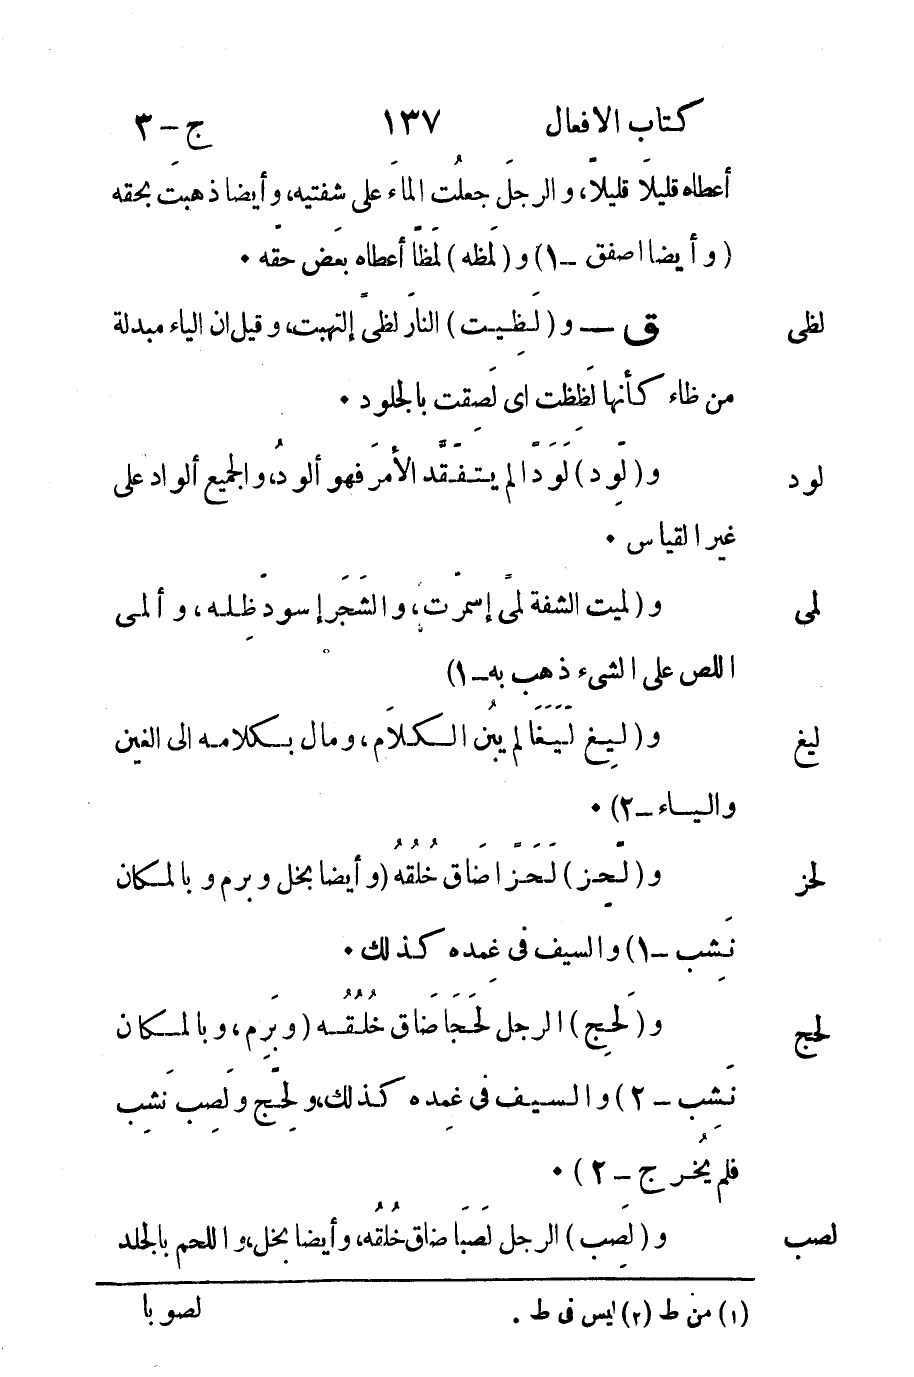 كتاب الافعال ١٣٧ ج – ٣
أعطاه قليلاً قليلاً، والرجلَ جعلتُ الماءَ على شفتيه، وأيضا ذهبتَ بحقه
(وأيضا اصفق – ١) و (لَمَّظه) لَمظًا أعطاه بعضَ حقّه ٠
لظى ق — و (لَظِيت) النارُ لظىً إلتهبت، وقيل ان الياء مبدلة
من ظاء كأنها لَظِظت اى لَصِقت بالجلود ٠
لود و (لَوِد) لَوَدًا لم يتفقَّد الأمرَ فهو ألودُ، والجميع ألواد على
غير القياس ٠
لمى و (لميت الشفة لمىً إسمرّت، والشَجَر إسودّ ظِله، وألمى
اللص على الشىء ذهب به – ١)
ليغ و (لَيِغ لَيَغًا لم يبُن الكلامَ، ومال بكلامه الى الغين
والياء – ٢) ٠
لحز و (لَحِز) لَحَزًا ضَاق خُلُقُه (وأيضا بخل وبرم وبالمكان
نَشِب – ١) والسيف فى غِمده كذلك ٠
لحج و (لَحِج) الرجل لَحَجَا ضَاق خُلُقُه (وبَرِم، وبالمكان
نَشِب – ٢) والسيف فى غِمده كذلك، ولَحِج ولَصِب نَشِب
فلم يُخرج – ٢) ٠
لصب و (لَصِب) الرجل لَصَبًا ضاق خُلُقُه، وأيضا بخل، واللحم بالجلد
(١) من ط (٢) ليس فى ط . لصوبا